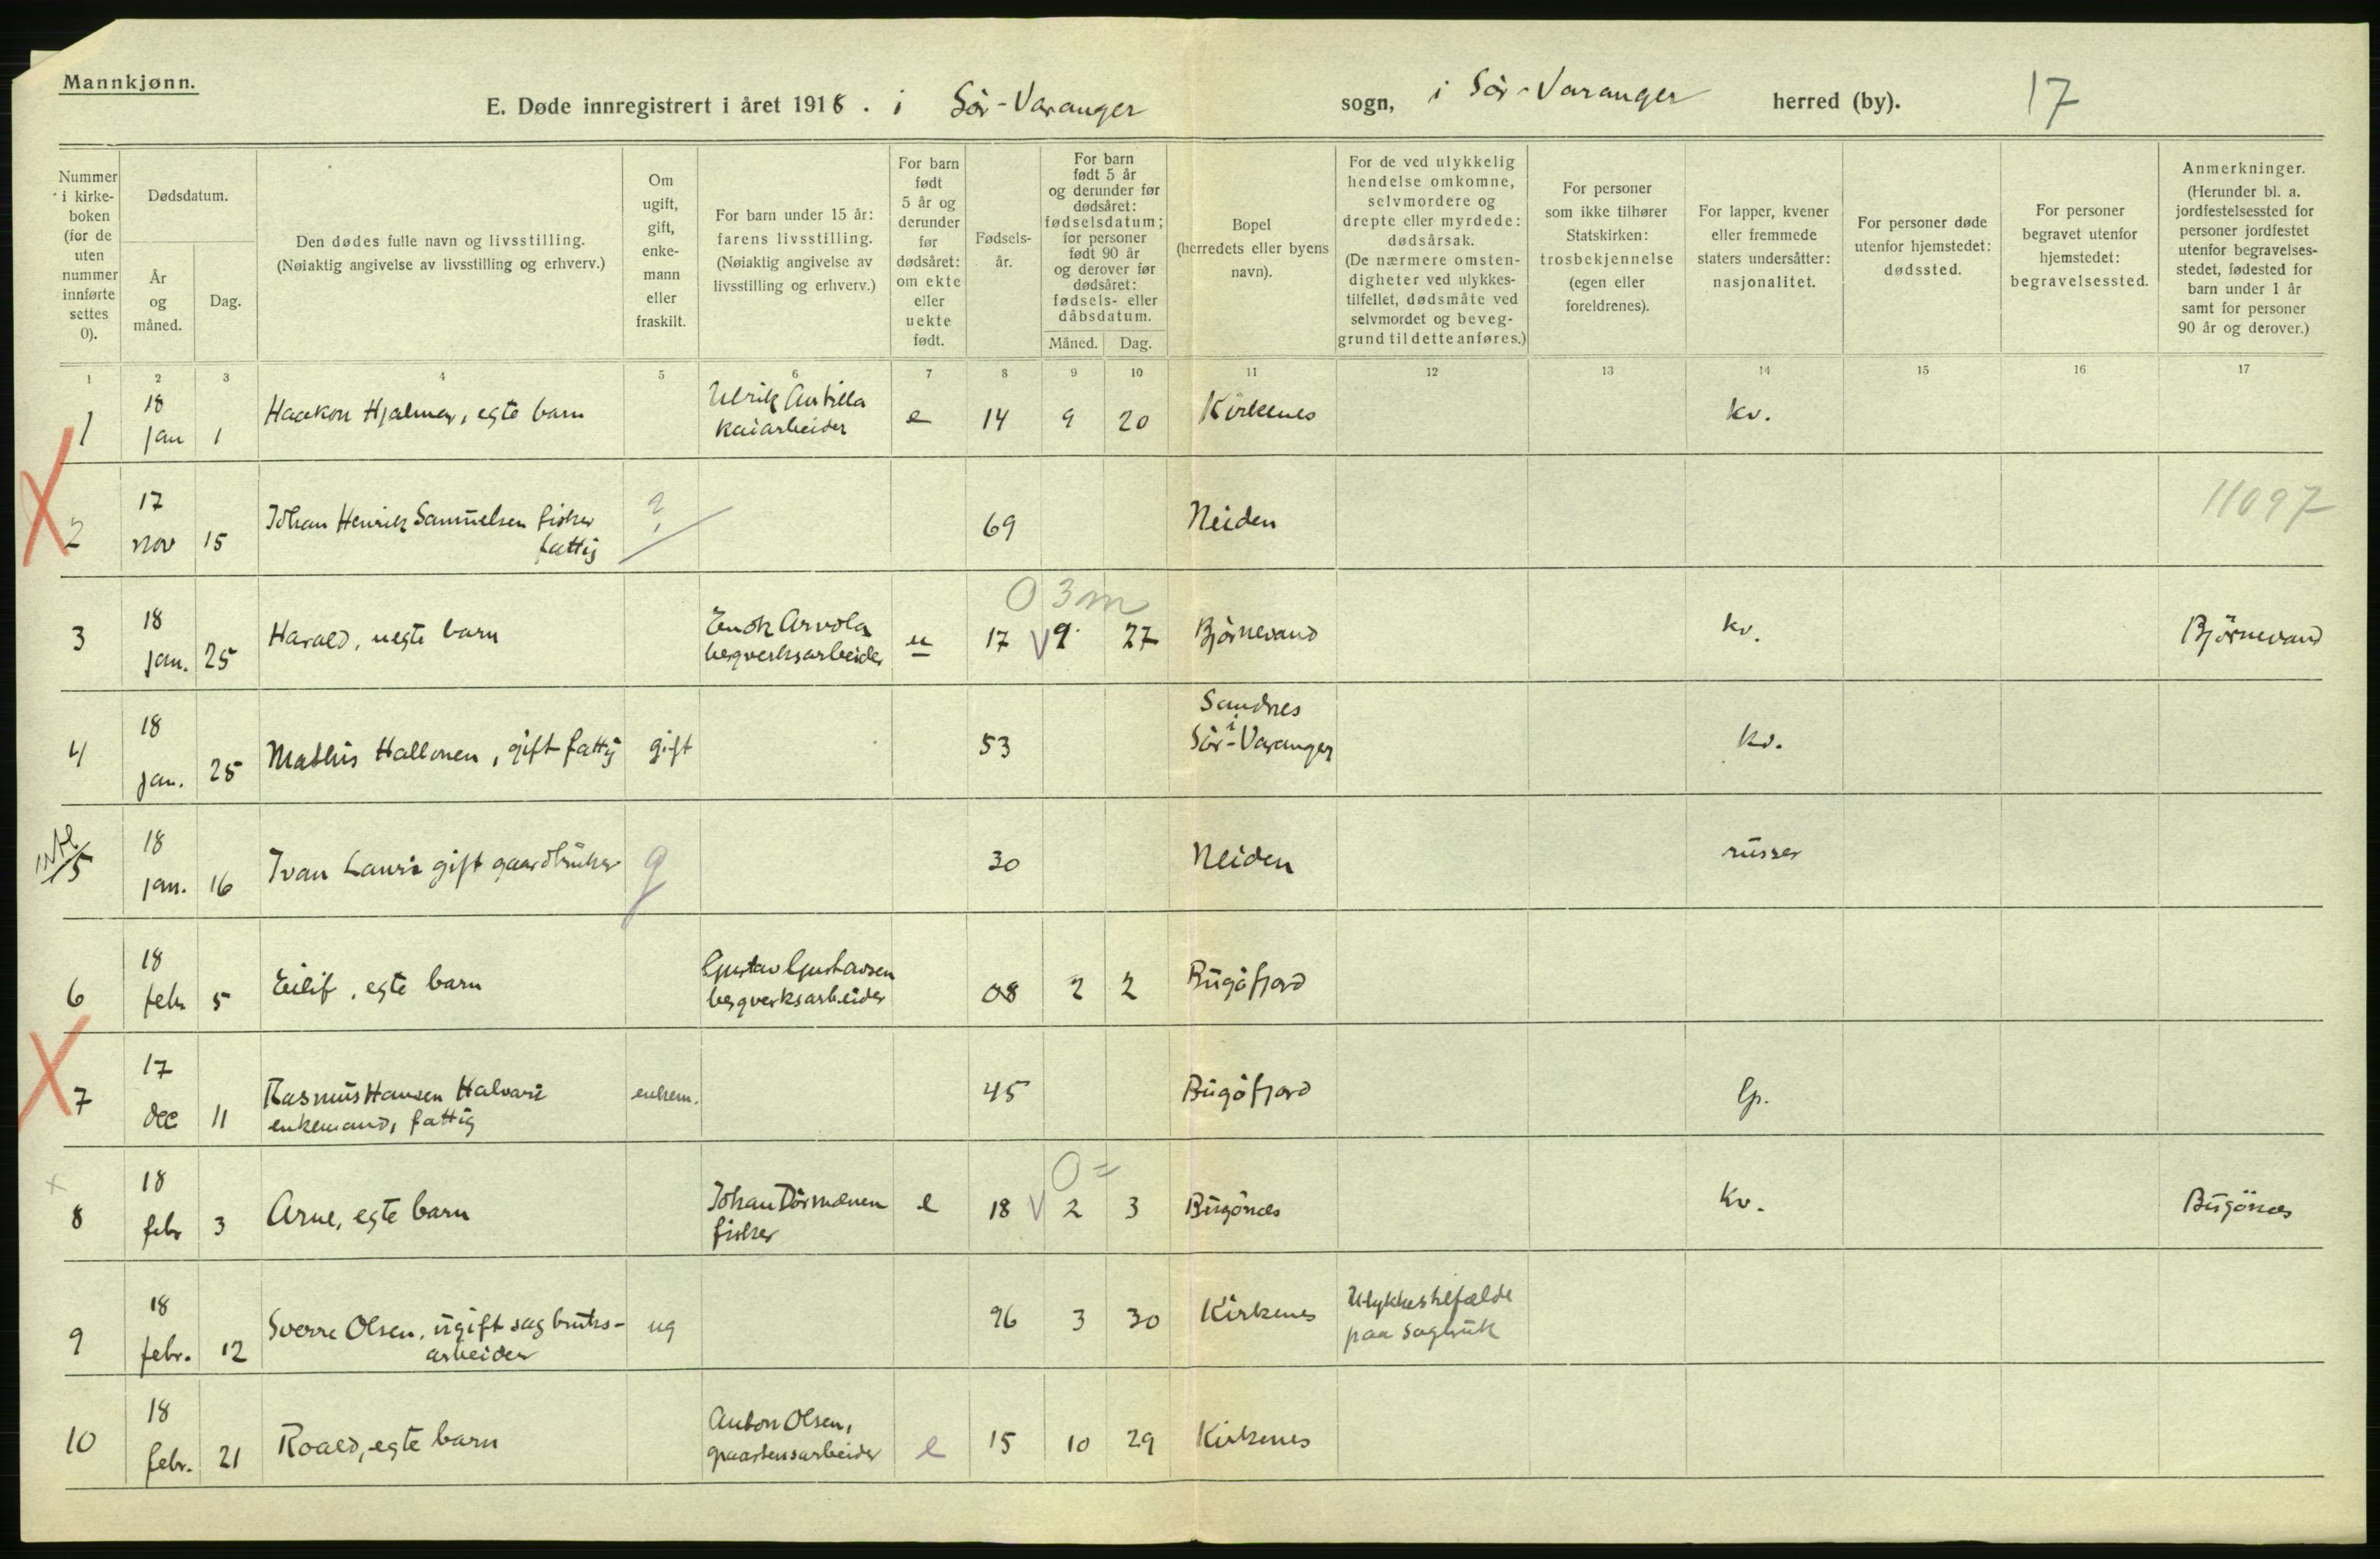 Mannkjønn.
E. Døde innregistrert i året 1918. i Sör-Varanger sogn, i Sör-Varanger herred (by). 17
Nummer i kirke-boken (for de uten nummer innførte settes 0).
Dødsdatum.
År og måned.
Dag.
Den dødes fulle navn og livsstilling.
(Nøiaktig angivelse av livsstilling og erhverv.)
Om ugift, gift, enke-mann eller fraskilt.
For barn under 15 år: farens livsstilling.
(Nøiaktig angivelse av livsstilling og erhverv.)
For barn født 5 år og derunder før dødsåret: om ekte eller uekte født.
Fødsels-år.
For barn født 5 år og derunder før dødsåret: fødselsdatum; for personer født 90 år og derover før dødsåret: fødsels- eller dåbsdatum.
Måned.
Dag.
Bopel (herredets eller byens navn).
For de ved ulykkelig hendelse omkomne, selvmordere og drepte eller myrdede: dødsårsak.
(De nærmere omsten-digheter ved ulykkes-tilfellet, dødsmåte ved selvmordet og beveg-grund til dette anføres.)
For personer som ikke tilhører Statskirken: trosbekjennelse (egen eller foreldrenes).
For lapper, kvener eller fremmede staters undersåtter: nasjonalitet.
For personer døde utenfor hjemstedet: dødssted.
For personer begravet utenfor hjemstedet: begravelsessted.
Anmerkninger.
(Herunder bl. a. jordfestelsessted for personer jordfestet utenfor begravelses-stedet, fødested for barn under 1 år samt for personer 90 år og derover.)
1 2 3 4 5 6 7 8 9 10 11 12 13 14 15 16 17
1 18 jan 1 Haakon Hjalmar, egte barn Ulrik Antilla kaiarbeider e 14 9 20 Kirkenes kv.
2 17 nov 15 Johan Henrik Samuelsen fisker fattig ? 69 Neiden 11097
0 3 m
3 18 jan. 25 Harald, uegte barn Enok Arvola bergverksarbeider u 17 V 9 27 Björnevand kv. Björnevand
4 18 jan. 25 Mathis Hallonen, gift fattig gift 53 Sandnes i Sör-Varanger kv.
5 18 jan. 16 Ivan Lauri gift gaardbruker g 30 Neiden russer
6 18 febr 5 Eilif, egte barn Gustav Gustavsen bergverksarbeider 08 2 2 Bugöfjord
7 17 dec 11 Rasmus Hansen Halvari enkemand, fattig enkem. 45 Bugöfjord lp.
0 =
x 8 18 febr 3 Arne, egte barn Johan Dörmænen fisker e 18 V 2 3 Bugönes kv. Bugönes
9 18 febr. 12 Sverre Olsen, ugift sagbruks-arbeider ug 96 3 30 Kirkenes Ulykkestilfælde paa sagbruk
10 18 febr. 21 Roald, egte barn Anton Olsen, e 15 10 29 Kirkenes